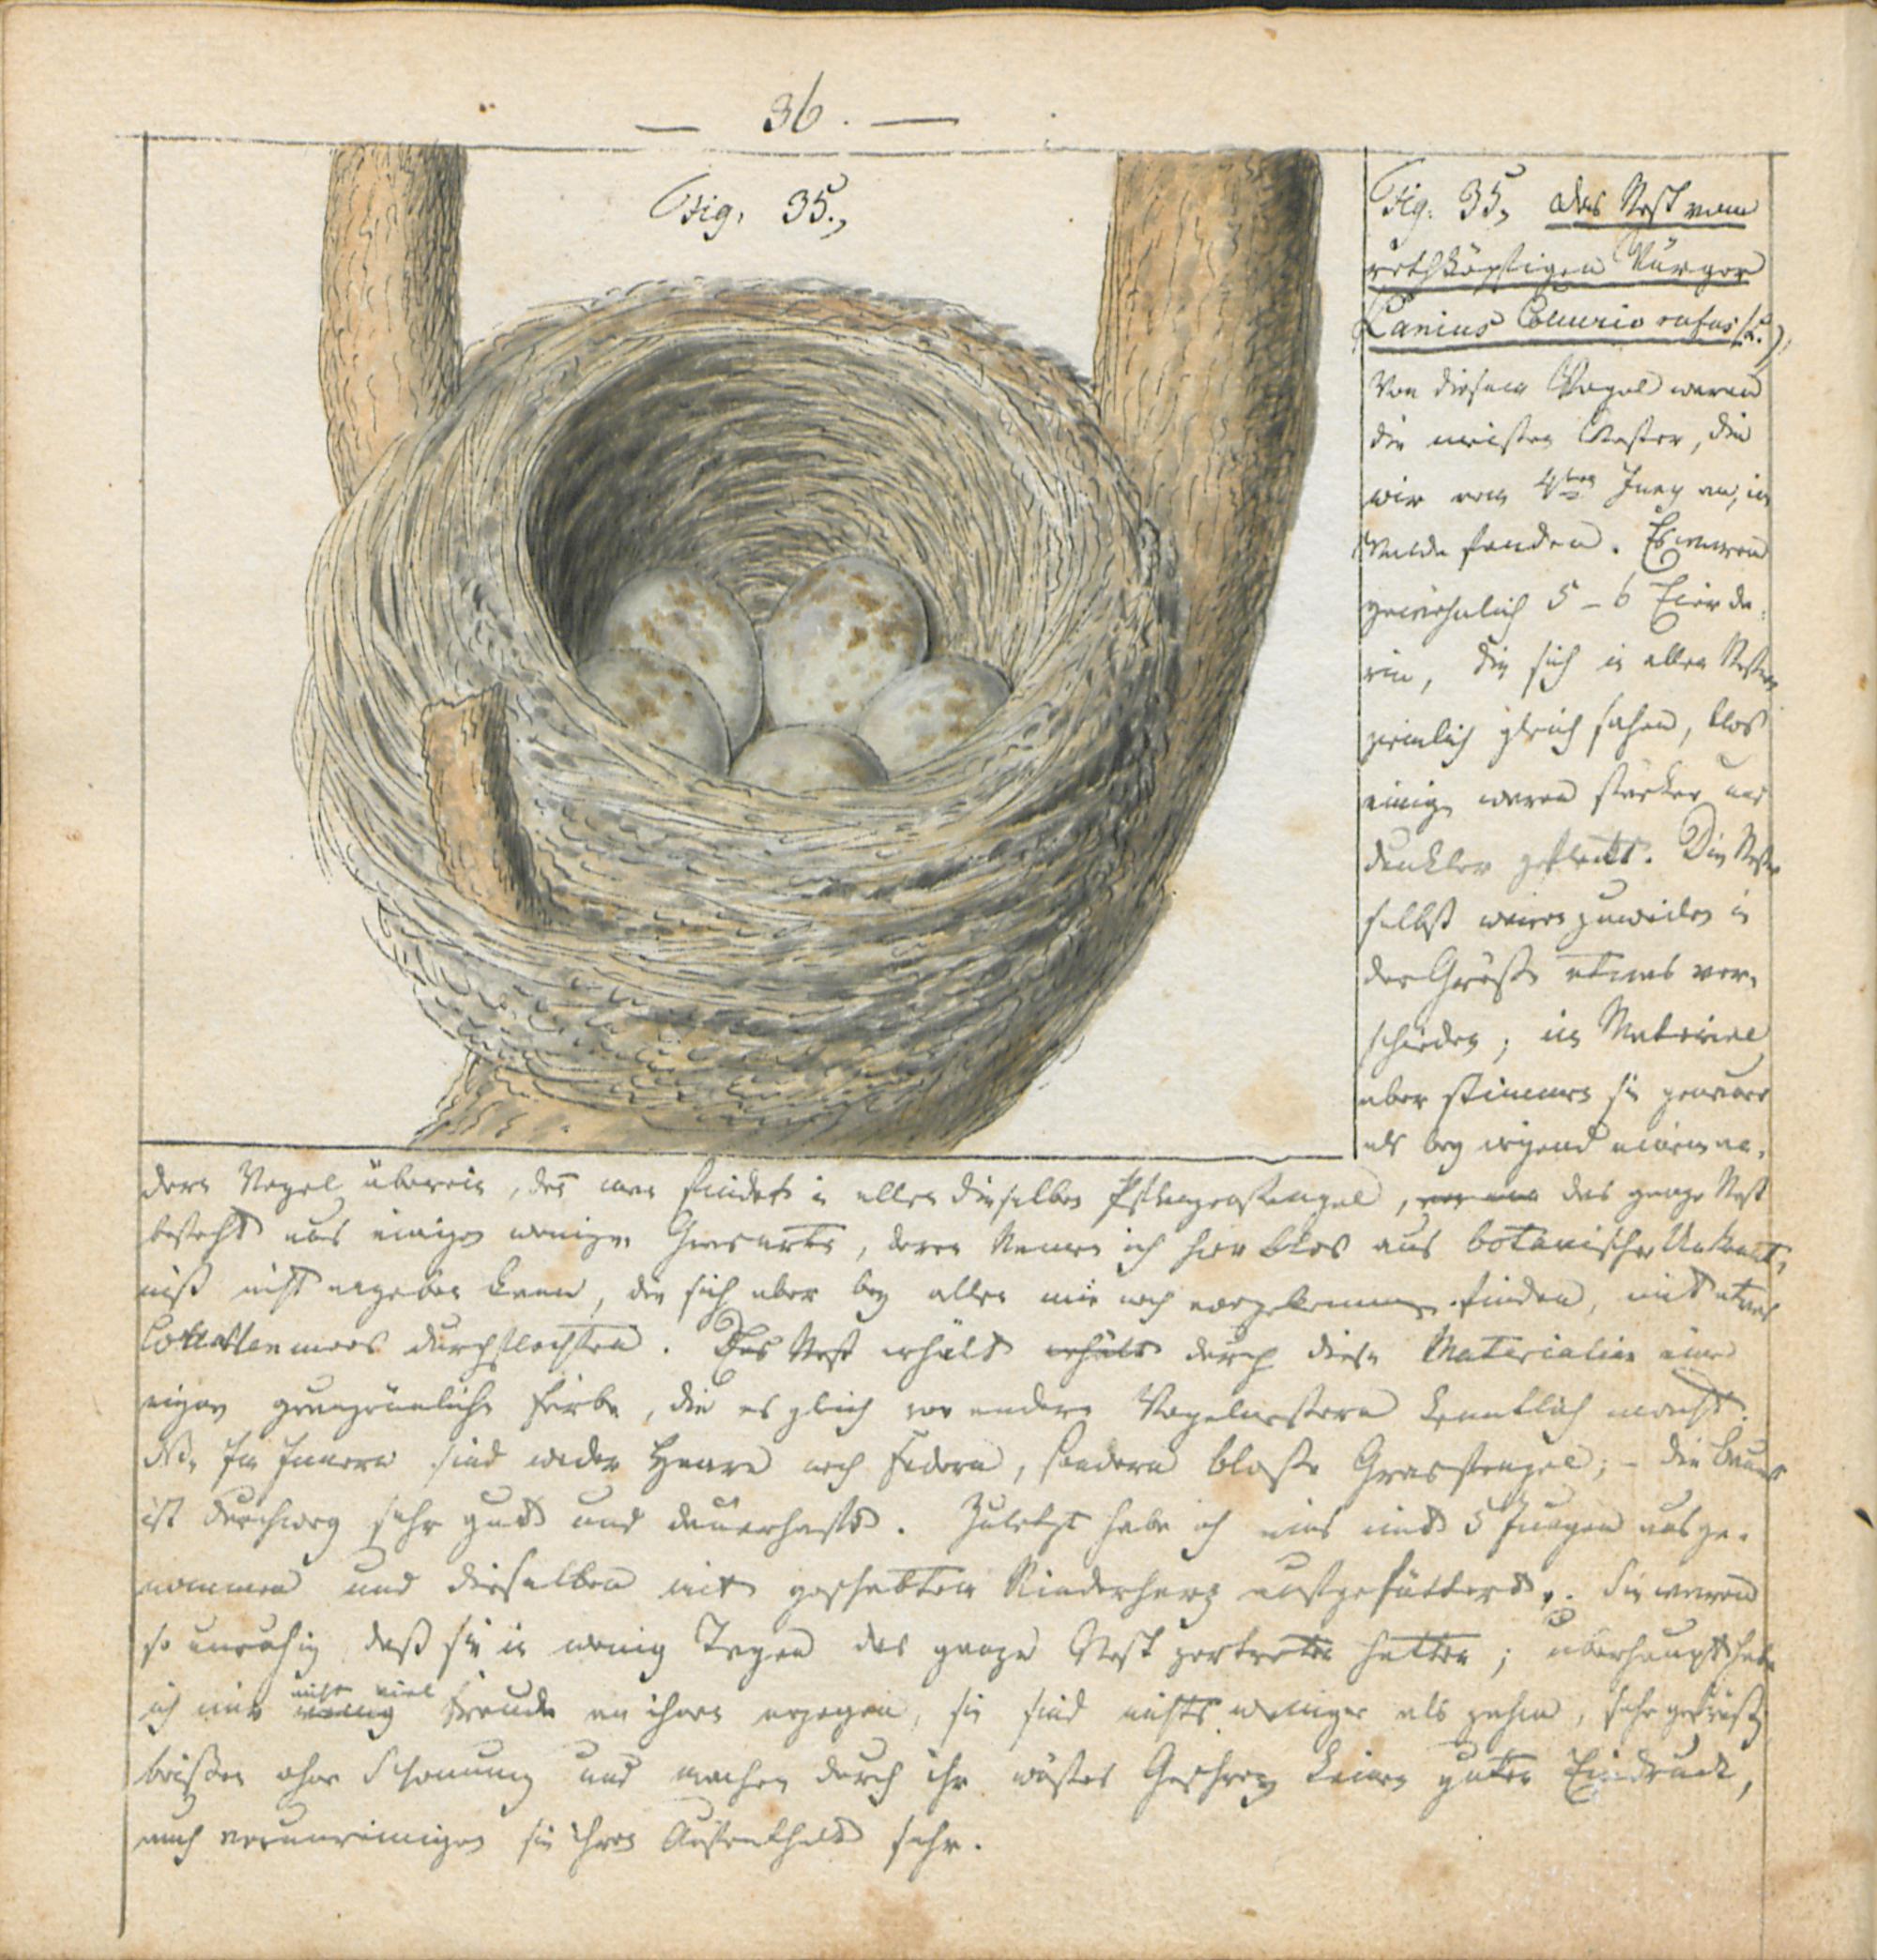 — 36. —
Fig. 35.,
Fig. 35, das Nest vom
rothköpfigen Würger
Lanius Collurio rufus (L.),
Von diesem Vogel waren
die meisten Nester, die
wir vom 4ten Juny an, im
Walde fanden. Es waren
gewöhnlich 5 – 6 Eier da-
rin, die sich in allen Nestern
ziemlich gleich sahen, blos
einige waren stärker und
dunkler gefleckt. Die Nester
selbst waren zuweilen in
der Größe etwas ver-
schieden; im Material
aber stimmen sie genauer
als bey irgend einem an-
dern Vogel überein, den man findet in allen dieselben Pflanzenstengel, das ganze Nest
besteht aus einigen wenigen Grasarten, deren Namen ich hier blos aus botanischer Unkennt-
niß nicht angeben kann, die sich aber bey allen mir noch vorgekommenen finden, mit etwas
moos durchflochten. Das Nest erhält erhält durch diese Materialien eine
eigen graugrünliche Farbe, die es gleich vor andern Vogelnestern kenntlich macht.
NB. Im Innern sind weder Haare noch Federn, sondern bloße Grasstengel; – die Bauart
ist durchweg sehr gut und dauerhaft. Zuletzt habe ich eins mit 5 Jungen ausge-
nommen und dieselben mit geschabten Rinderherz aufgefüttert. Sie waren
so unruhig daß sie in wenig Tagen das ganze Nest zertreten hatten; überhaupt habe
ich mir wenig nicht viel Freude an ihnen erzogen, sie sind nichts weniger als zahm, sehr gefräßig
beißen ohne Schonung und machen durch ihr wüstes Geschrey keinen guten Eindruck,
auch verunreinigen sie ihren Aufenthalt sehr.